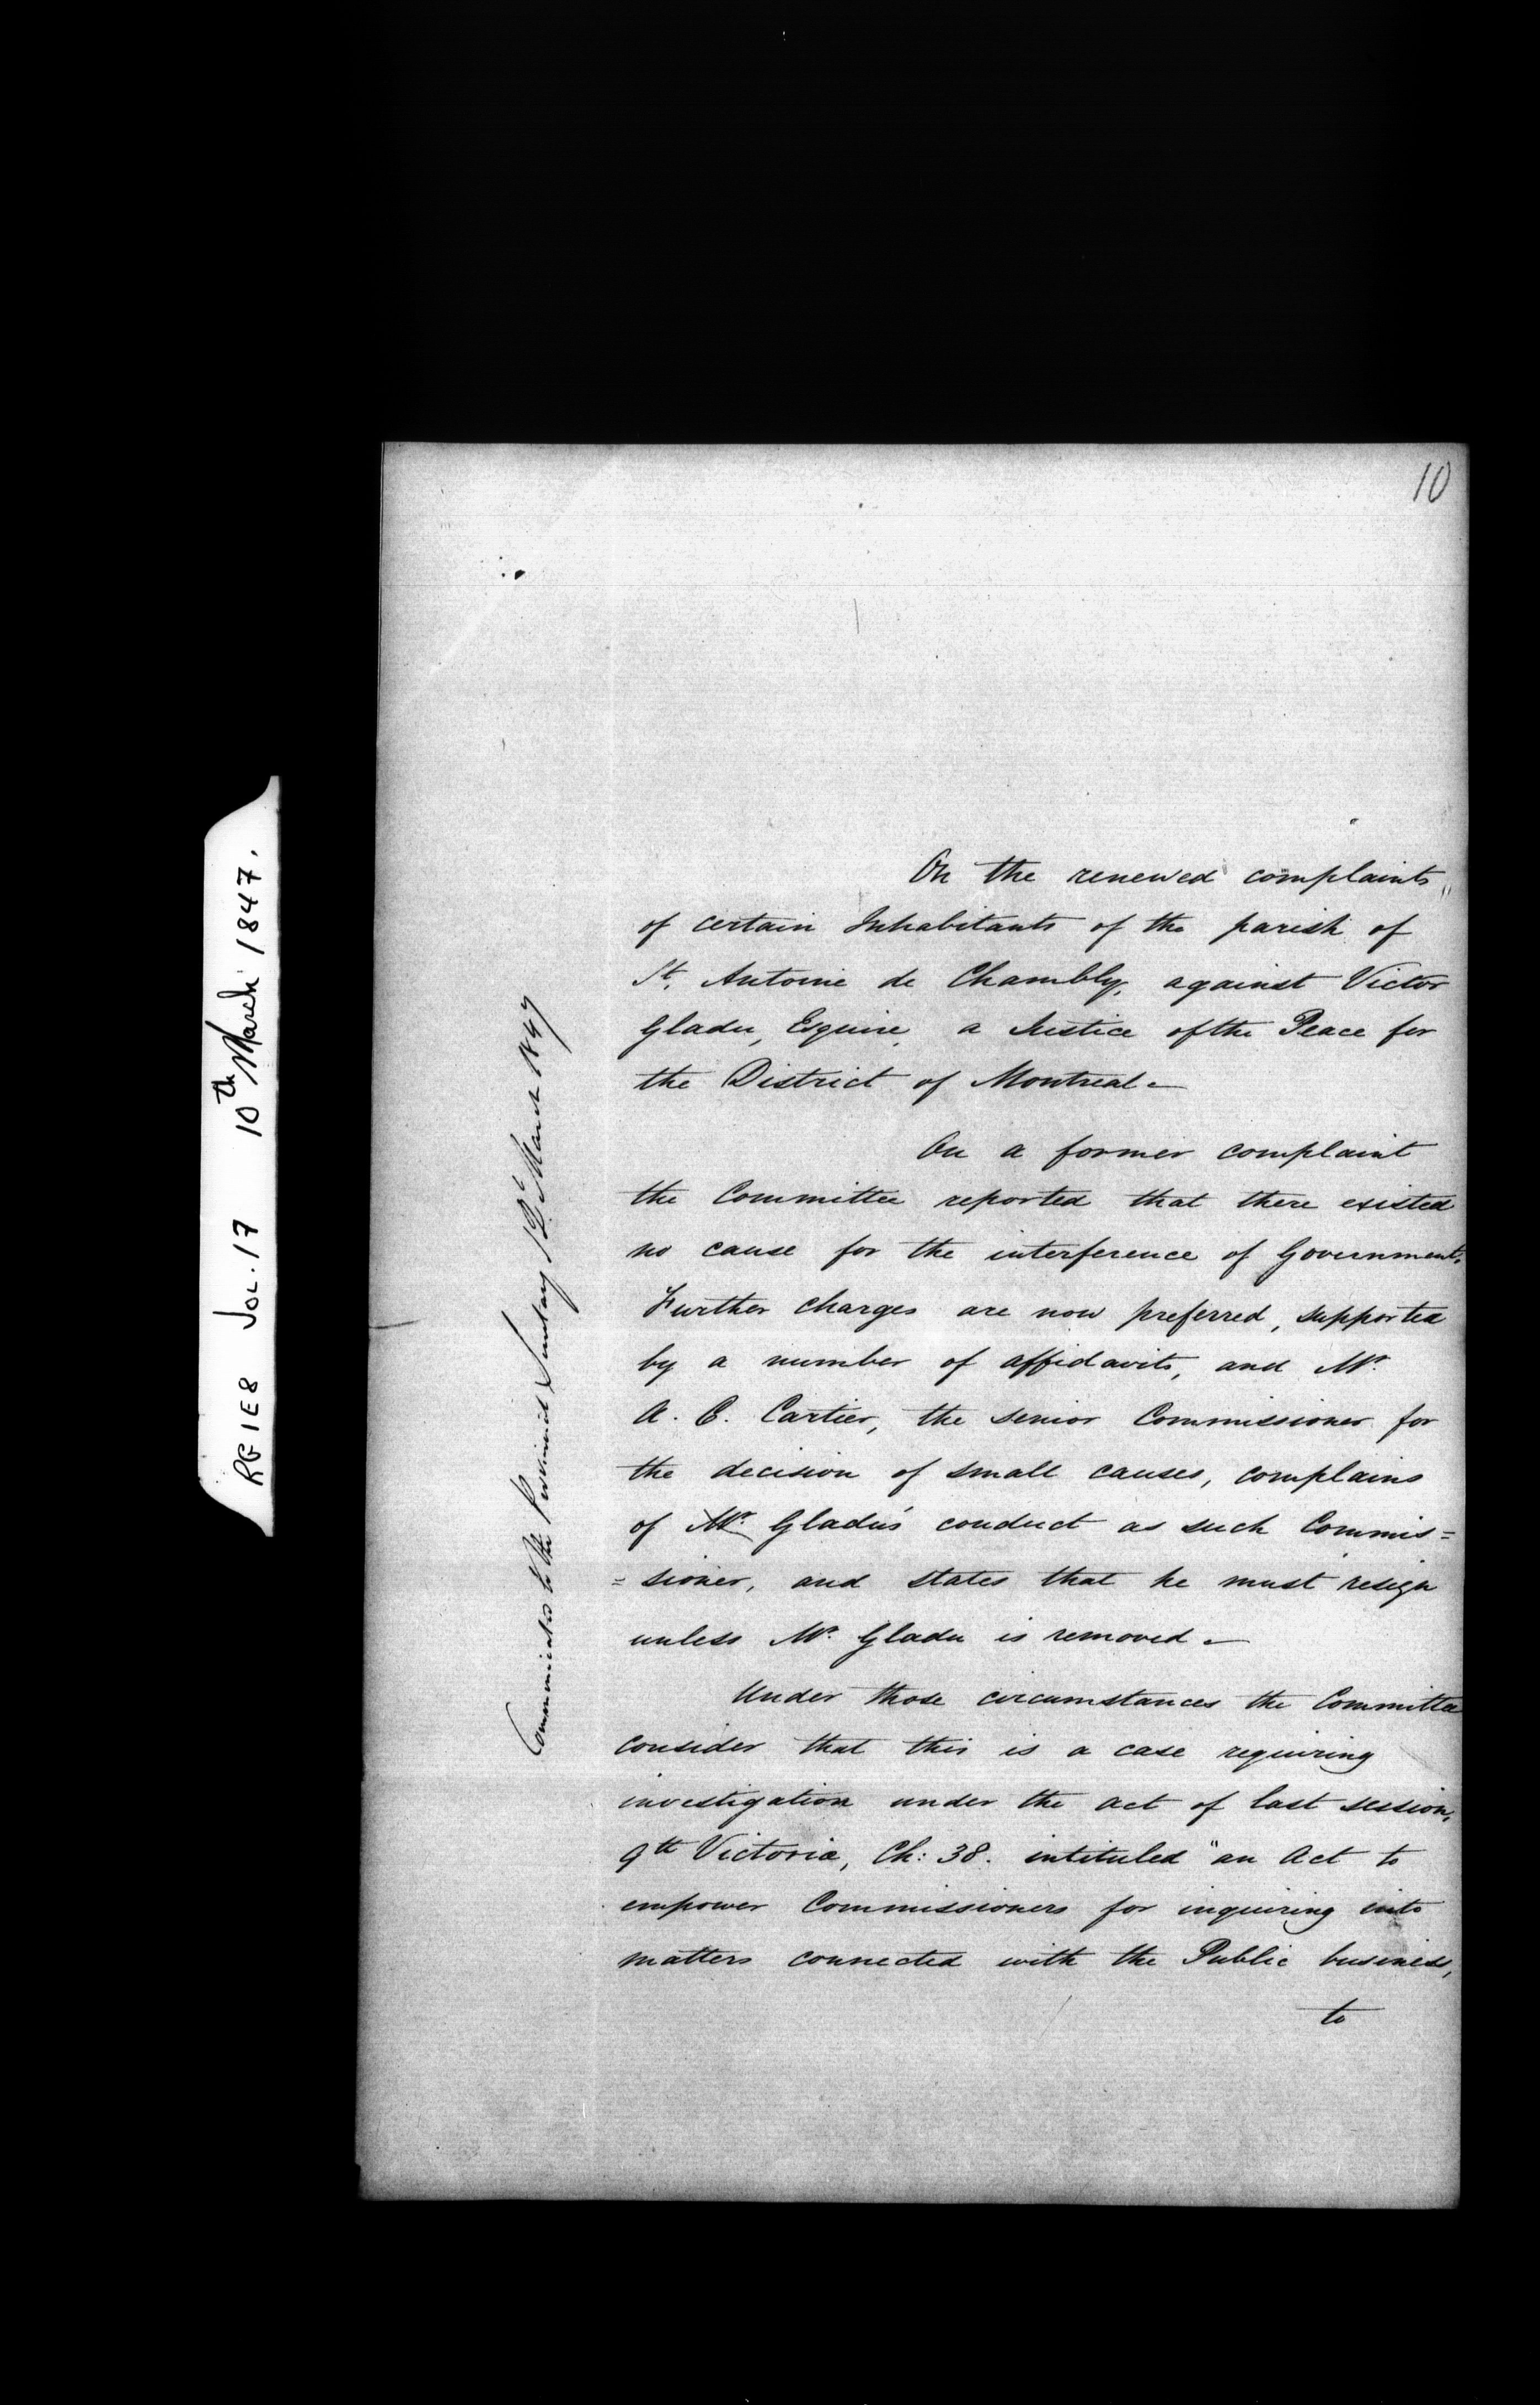 10
RG 1 E8 Vol. 17 10th March 1847.
Communicated to the Provincial Secretary 12th March 1847
On the renewed complaints
of certain Inhabitants of the parish of
St. Antoine de Chambly, against Victor
Gladu, Esquire, a Justice of the Peace for
the District of Montreal.—
On a former complaint
the Committee reported that there existed
no cause for the interference of Government.
Further charges are now preferred, supported
by a number of affidavits, and Mr.
A. C. Cartier, the senior Commissioner for
the decision of small causes, complains
of Mr. Gladu's conduct as such Commis=
=sioner, and states that he must resign
unless Mr. Gladu is removed.—
Under those circumstances the Committee
consider that this is a case requiring
investigation under the act of last session,
9th Victoria, Ch: 38. intituled "an Act to
empower Commissioners for inquiring into
matters connected with the Public business,
to